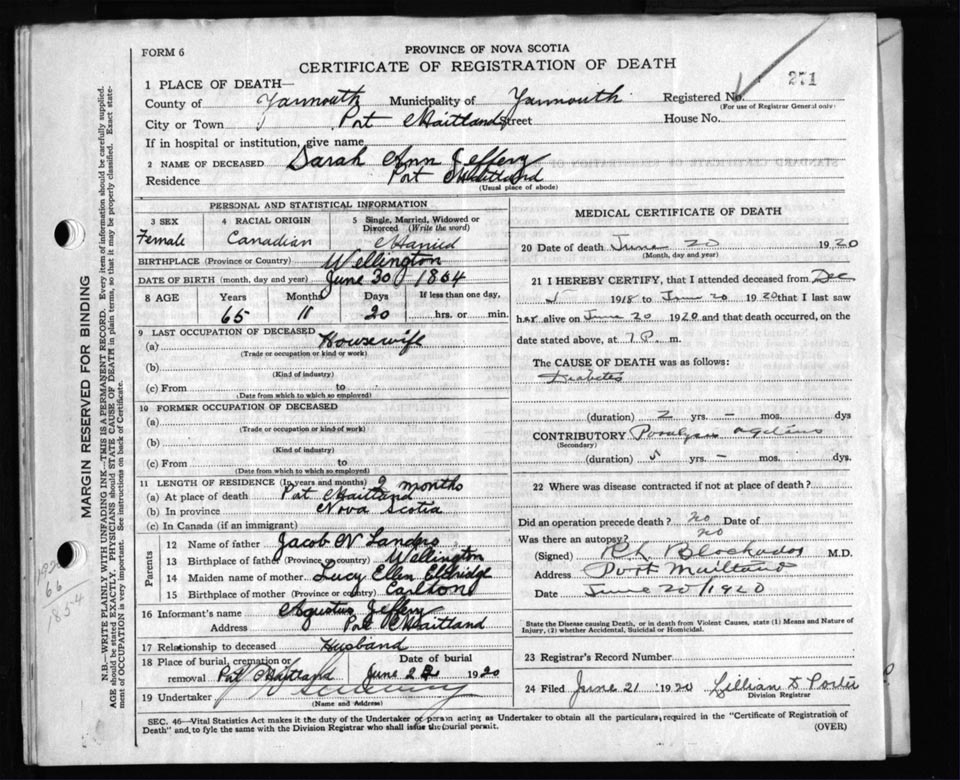 FORM 6
PROVINCE OF NOVA SCOTIA
CERTIFICATE OF REGISTRATION OF DEATH
271
1 PLACE OF DEATH—
County of Yarmouth Municipality of Yarmouth Registered No.
(For use of Registrar General only)
City or Town Port Maitland Street House No.
If in hospital or institution, give name
2 NAME OF DECEASED Sarah Ann Jeffery
Residence Port Maitland
(Usual place of abode)
PERSONAL AND STATISTICAL INFORMATION
3 SEX 4 RACIAL ORIGIN 5 Single, Married, Widowed or Divorced (Write the word)
Female Canadian Married
BIRTHPLACE (Province or Country) Wellington
DATE OF BIRTH (month, day and year) June 30 1854
8 AGE Years Months Days If less than one day,
65 11 20 hrs. or min.
9 LAST OCCUPATION OF DECEASED
(a) Housewife
(Trade or occupation or kind or work)
(b)
(Kind of industry)
(c) From to
(Date from which to which so employed)
10 FORMER OCCUPATION OF DECEASED
(a)
(Trade or occupation or kind of work)
(b)
(Kind of industry)
(c) From to
(Date from which to which so employed)
11 LENGTH OF RESIDENCE (In years and months) 2 months
(a) At place of death Port Maitland
(b) In province Nova Scotia
(c) In Canada (if an immigrant)
Parents
12 Name of father Jacob N Landers
13 Birthplace of father (Province or country) Wellington
14 Maiden name of mother Lucy Ellen Eldridge
15 Birthplace of mother (Province or country) Carlton
16 Informant's name Agustus Jeffery
Address Port Maitland
17 Relationship to deceased Husband
18 Place of burial, cremation or removal Port Maitland Date of burial June 22 1920
19 Undertaker
(Name and Address)
MEDICAL CERTIFICATE OF DEATH
20 Date of death June 20 1920
(Month, day and year)
21 I HEREBY CERTIFY, that I attended deceased from Dec
5 1918 to June 20 1920 that I last saw
her alive on June 20 1920 and that death occurred, on the
date stated above, at 7 P. m.
The CAUSE OF DEATH was as follows:
Diabetes
(duration) 2 yrs. — mos. dys
CONTRIBUTORY Paralysis agitans
(Secondary)
(duration) 5 yrs. — mos. dys.
22 Where was disease contracted if not at place of death?
Did an operation precede death? no Date of
Was there an autopsy? no
(Signed) M.D.
Address Port Maitland
Date June 20/1920
State the Disease causing Death, or in death from Violent Causes, state (1) Means and Nature of
Injury, (2) whether Accidental, Suicidal or Homicidal.
23 Registrar's Record Number
24 Filed June 21 1920 Lillian D Porter
Division Registrar
SEC. 46—Vital Statistics Act makes it the duty of the Undertaker or person acting as Undertaker to obtain all the particulars required in the "Certificate of Registration of
Death" and to fyle the same with the Division Registrar who shall issue the burial permit.
(OVER)
MARGIN RESERVED FOR BINDING
N.B.—WRITE PLAINLY WITH UNFADING INK—THIS IS A PERMANENT RECORD. Every item of information should be carefully supplied.
AGE should be stated EXACTLY. PHYSICIANS should STATE CAUSE OF DEATH in plain terms, so that it may be properly classified. Exact statement of OCCUPATION is very important. See instructions on back of Certificate.
66
1854